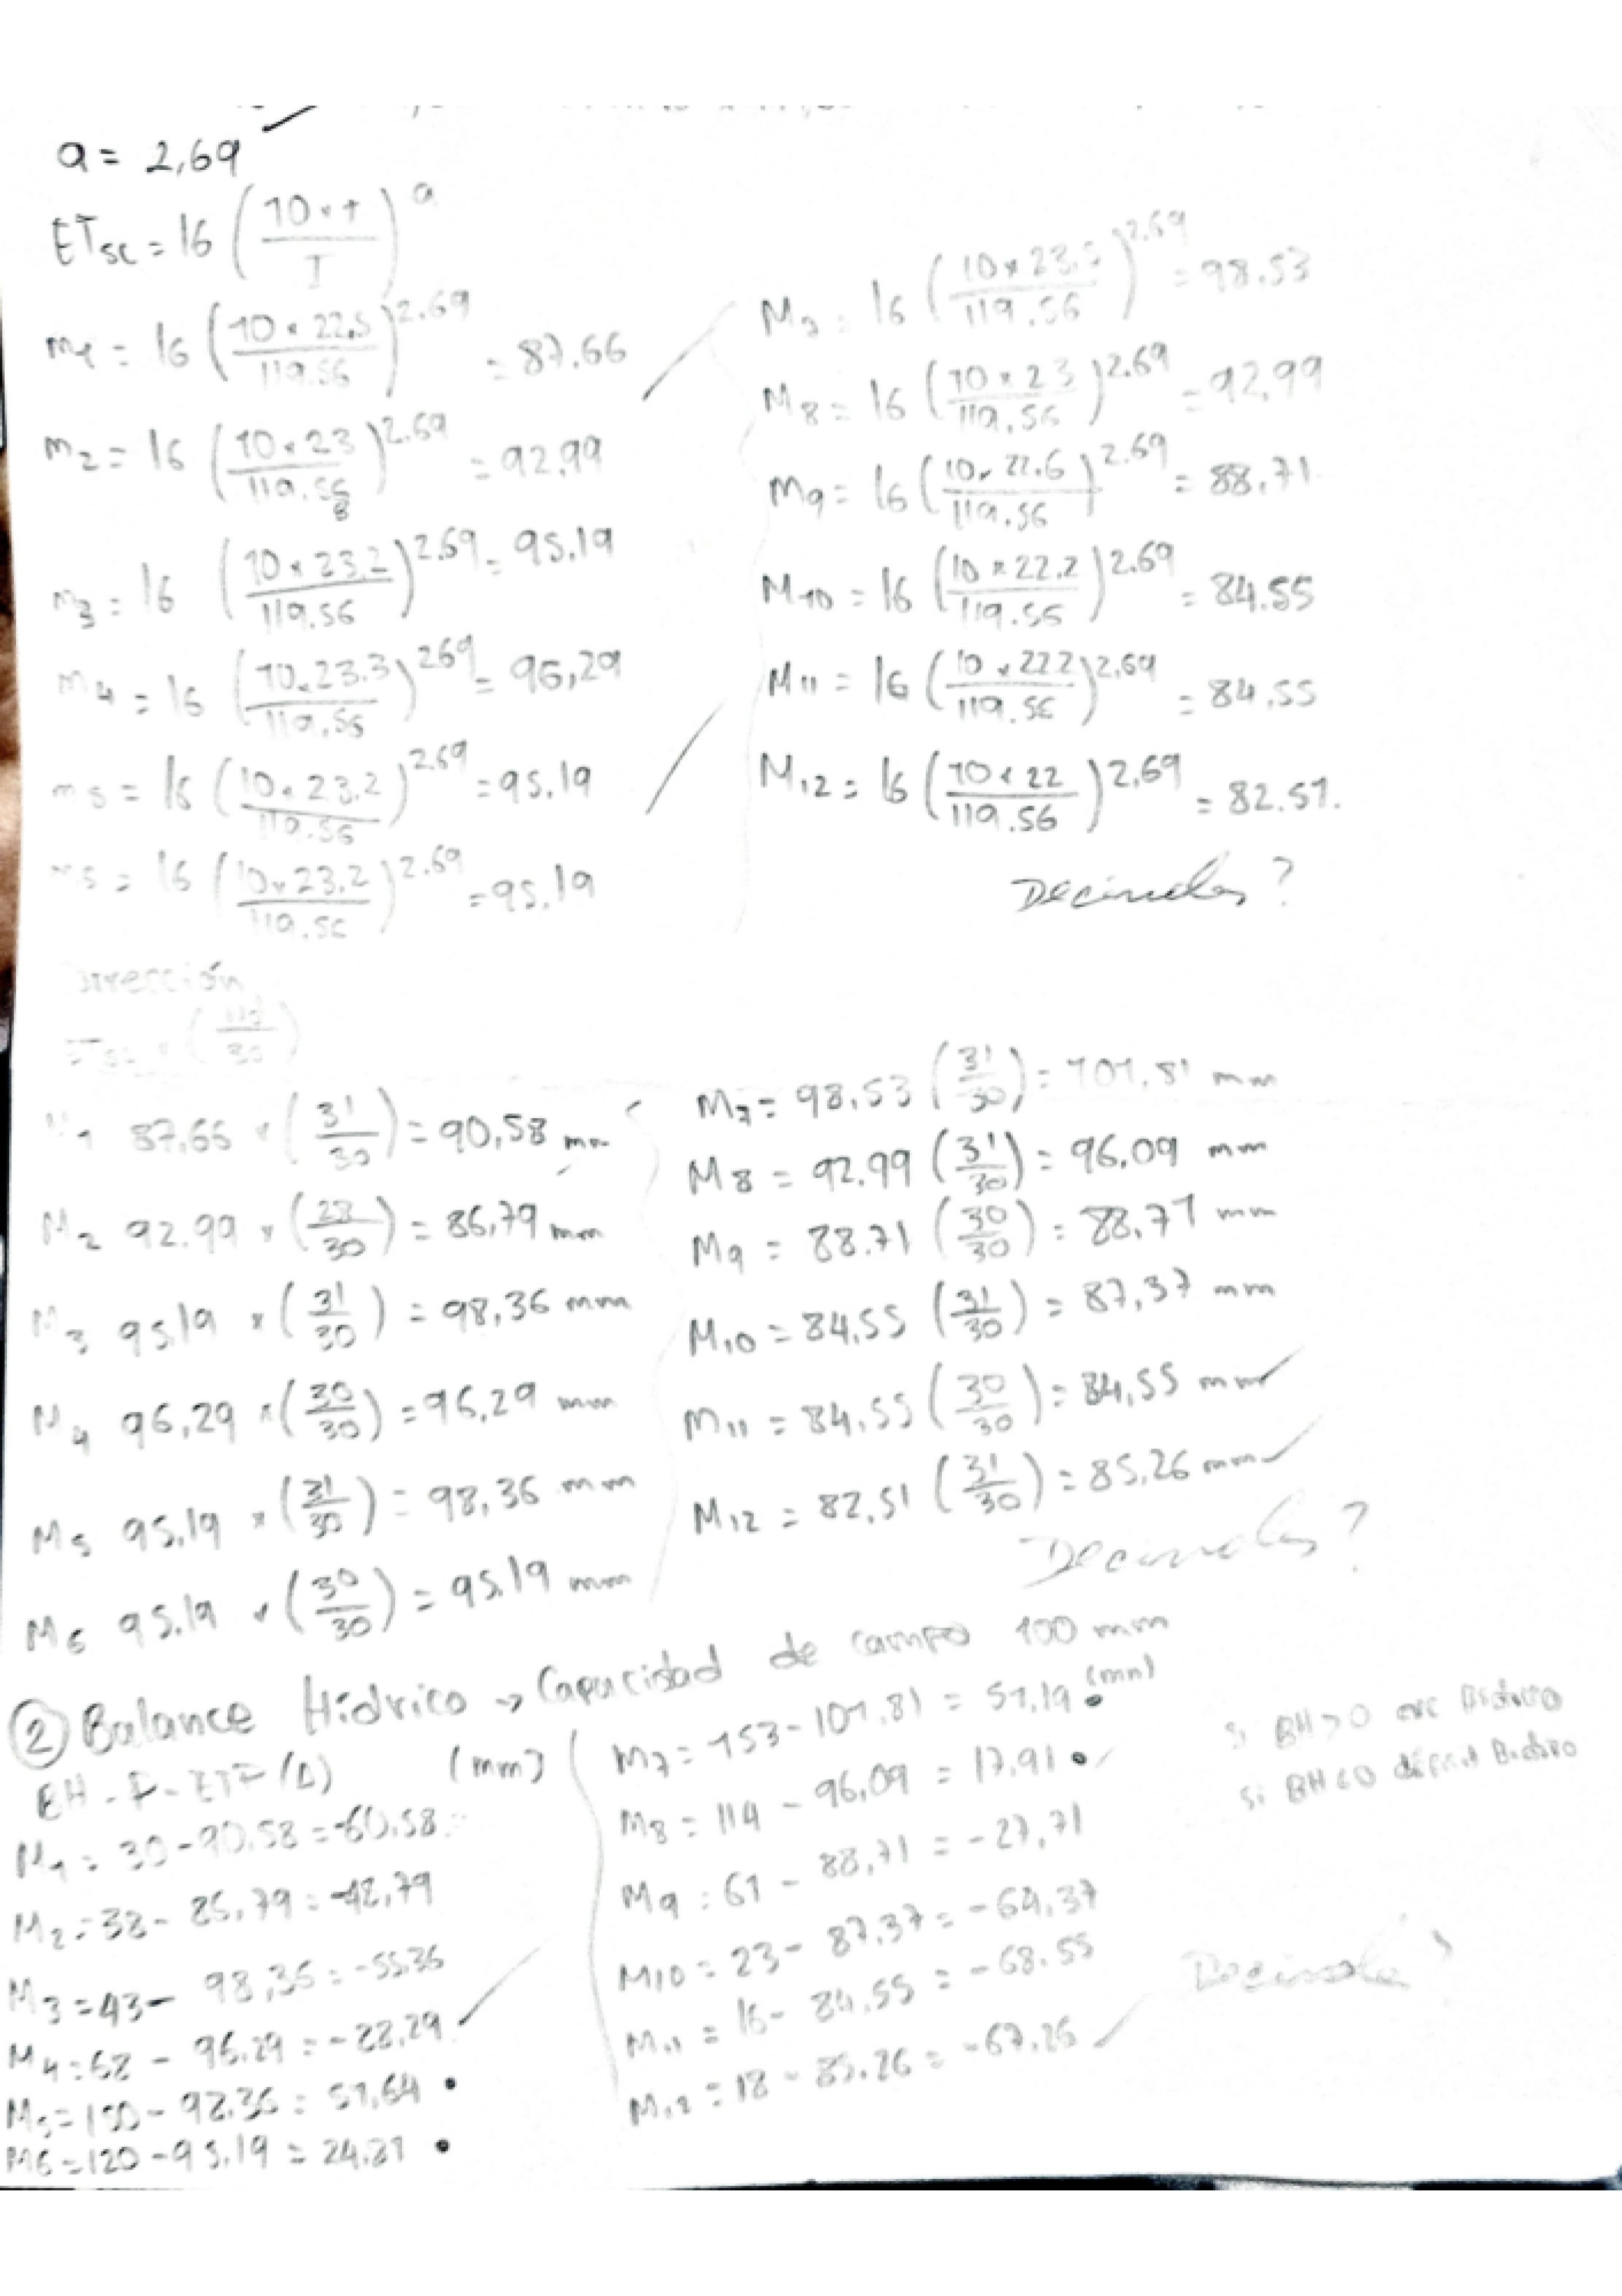 a = 2,69
ETsc = 16 (10 × t / I)^a
m1 = 16 (10 × 22,5 / 119.56)^2.69 = 87.66
m2 = 16 (10 × 23 / 119.56)^2.69 = 92,99
m3 = 16 (10 × 23.2 / 119.56)^2.69 = 95.19
m4 = 16 (10 × 23.3 / 119.56)^2.69 = 96,29
m5 = 16 (10 × 23.2 / 119.56)^2.69 = 95.19
16 (10 × 23.2 / 119.56)^2.69 = 95.19
M7 = 16 (10 × 23. / 119.56)^2.69 = 98.53
M8 = 16 (10 × 23 / 119,56)^2.69 = 92,99
M9 = 16 (10 × 22.6 / 119.56)^2.69 = 88,71
M10 = 16 (10 × 22.2 / 119.56)^2.69 = 84.55
M11 = 16 (10 × 22.2 / 119.56)^2.69 = 84,55
M12 = 16 (10 × 22 / 119.56)^2,69 = 82.51.
Decimales?
Corrección
M1 87,66 × (31/30) = 90,58 mm
M2 92.99 × (28/30) = 86,79 mm
M3 95.19 × (31/30) = 98,36 mm
M4 96,29 × (30/30) = 96,29 mm
M5 95,19 × (31/30) = 98,36 mm
M6 95.19 × (30/30) = 95.19 mm
M7 = 98,53 (31/30) = 101,81 mm
M8 = 92.99 (31/30) = 96.09 mm
M9 = 88.71 (30/30) = 88,71 mm
M10 = 84,55 (31/30) = 87,37 mm
M11 = 84,55 (30/30) = 84,55 mm
M12 = 82,51 (31/30) = 85,26 mm
Decimales?
② Balance Hídrico → Capacidad de campo 100 mm
(mm)
M1 = 30 - 90.58 = -60,58
M2 = 38 - 86,79 = -48,79
M3 = 43 - 98,36 = -55.36
M4 = 68 - 96.29 = -28,29
M5 = 150 - 98.36 = 51,64 •
M6 = 120 - 95.19 = 24.81 •
M7 = 153 - 101.81 = 51,19 • (mm)
M8 = 114 - 96,09 = 17,91 •
M9 = 61 - 88,71 = -27,71
M10 = 23 - 87,37 = -64,37
M11 = 16 - 84,55 = -68.55
M12 = 18 - 85.26 = -67,26
Si BH > 0
Si BH < 0